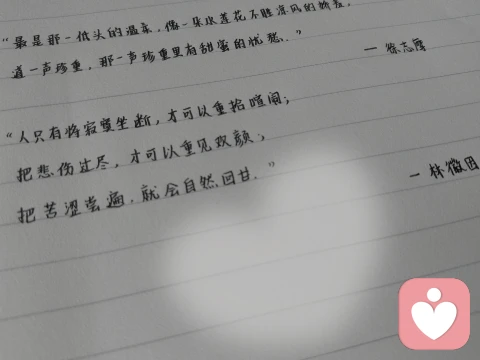 “最是那一低头的温柔，像一朵水莲花不胜凉风的娇羞，
道一声珍重，那一声珍重里有甜蜜的忧愁.”
— 徐志摩
“人只有将寂寞坐断，才可以重拾喧闹；
把悲伤过尽，才可以重见欢颜；
把苦涩尝遍，就会自然回甘.”
— 林徽因